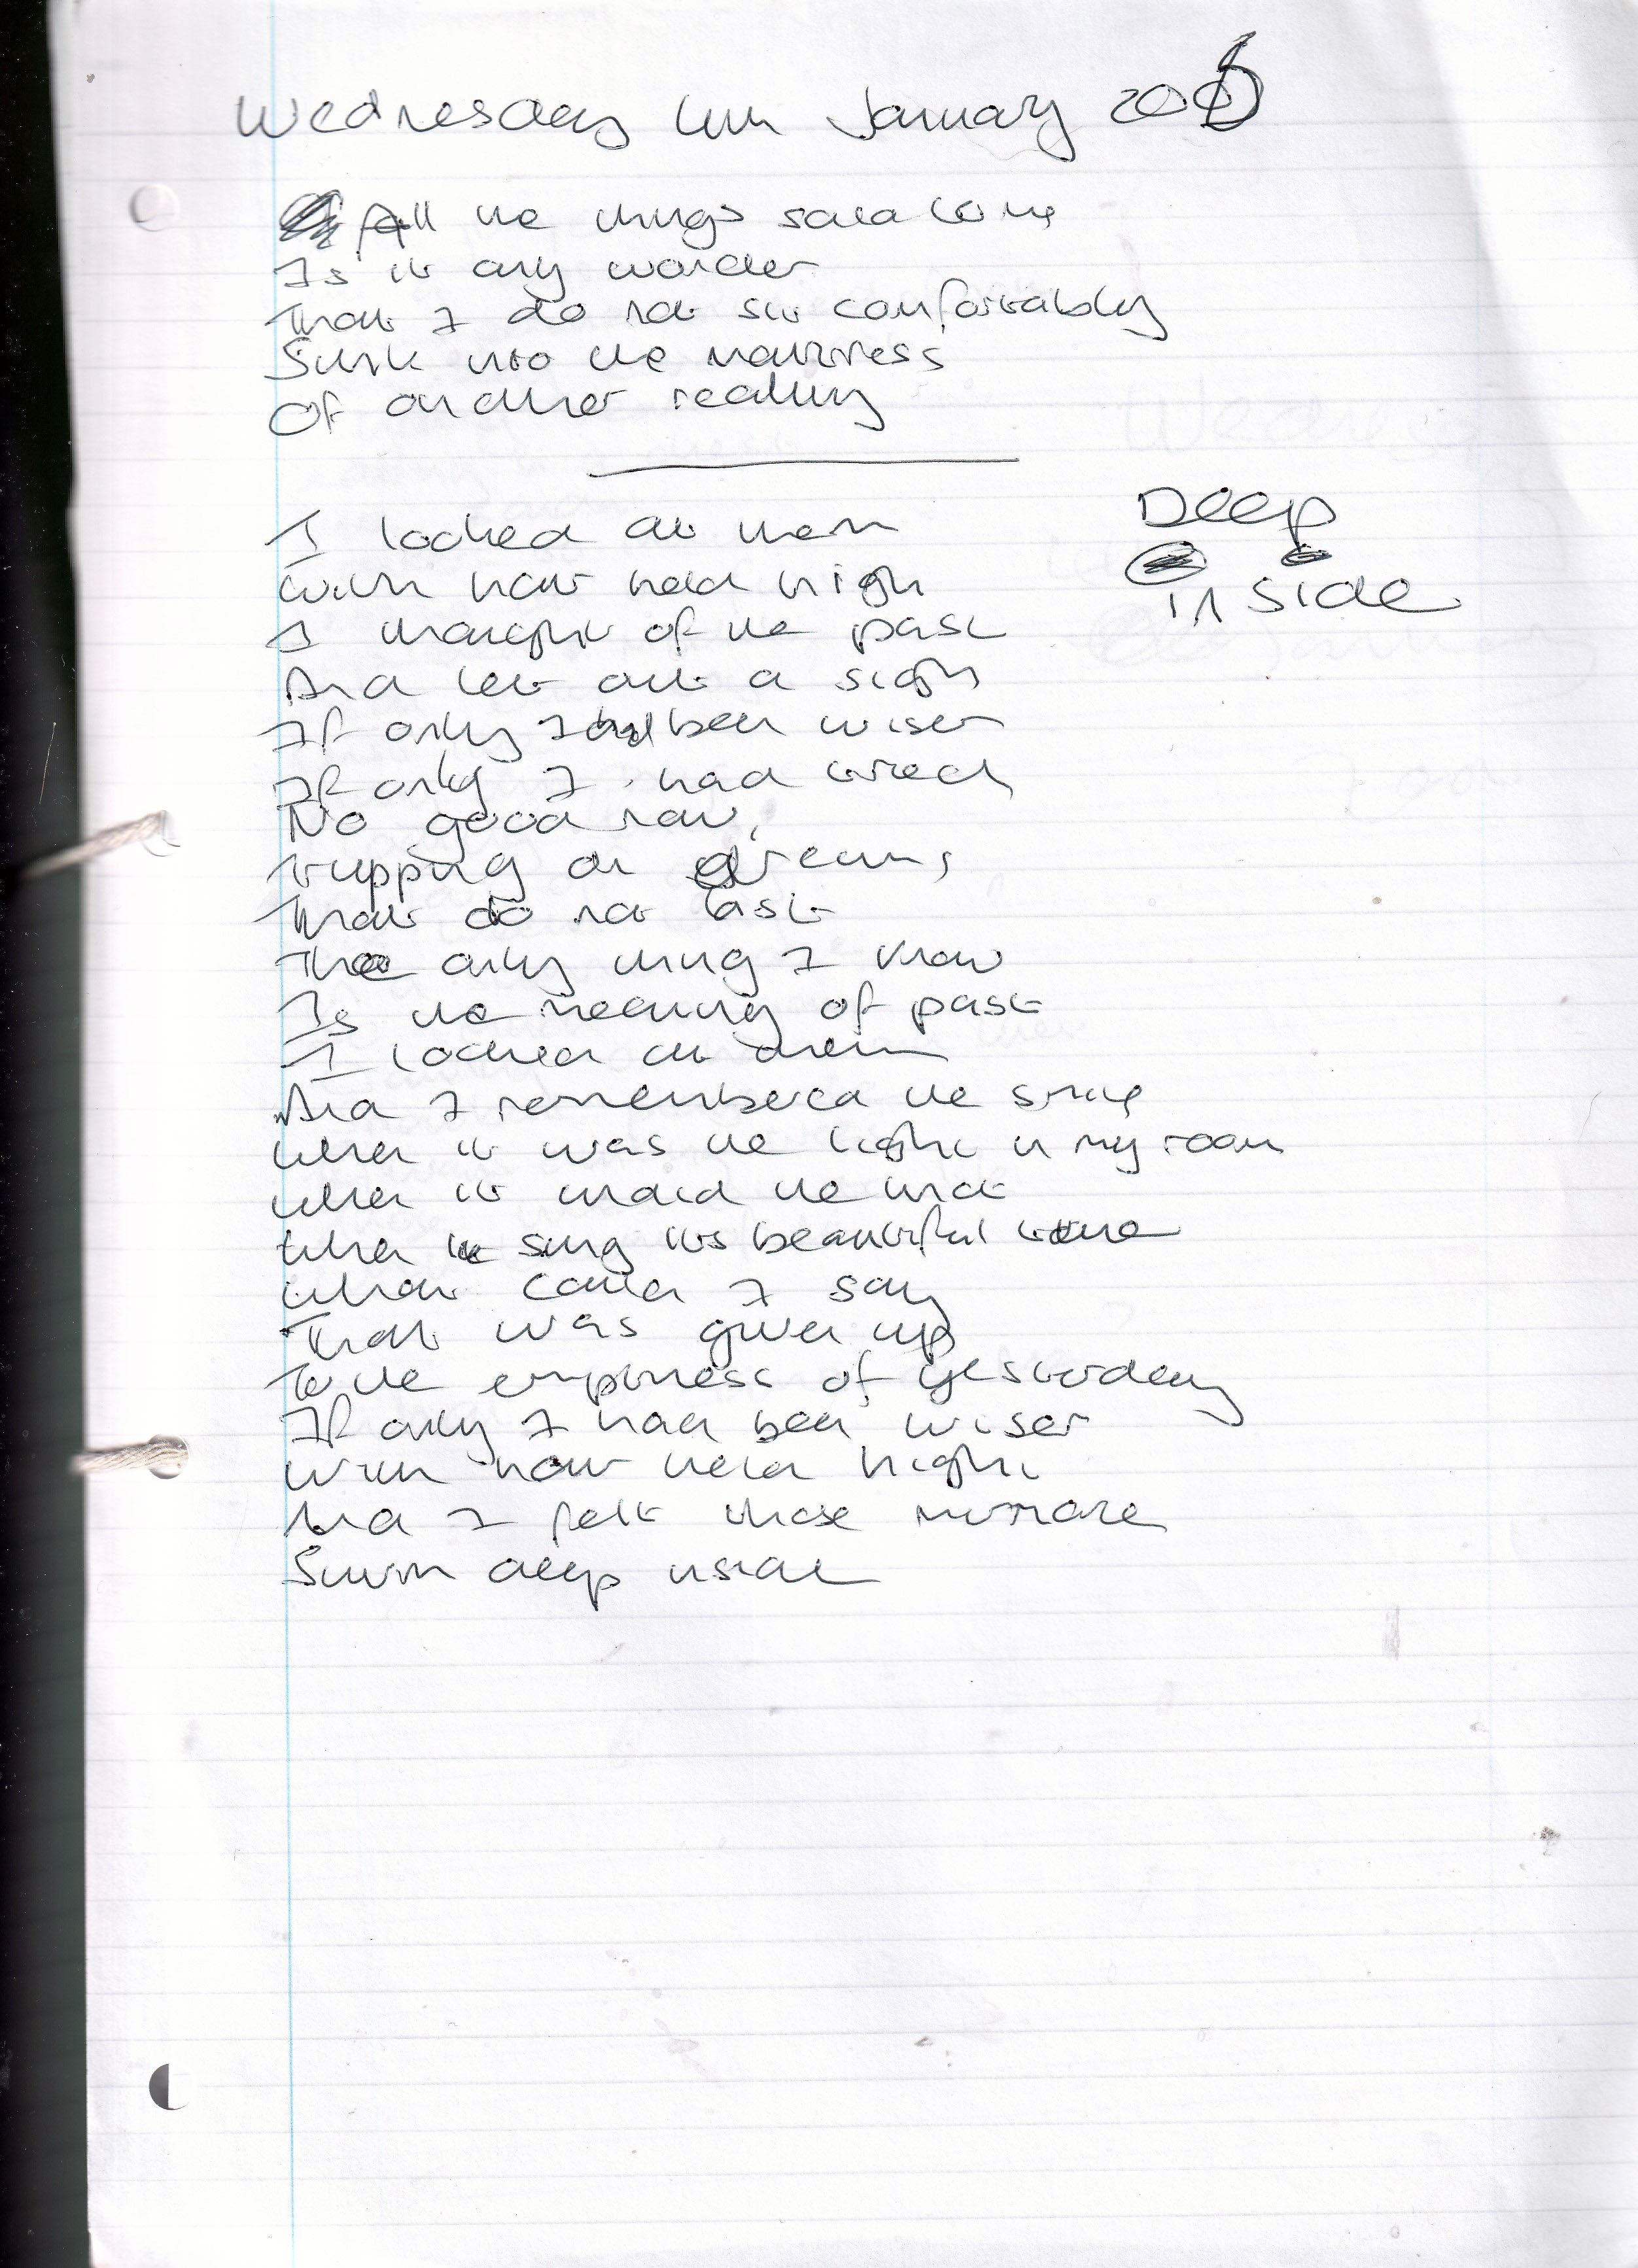 Wednesday January 200
All the things said to me
Is it any wonder
That I do not sit comfortably
Sunk into the mattress
Of another reality
I looked at them
Deep
With hat held high
in side
I thought of the past
And let out a sigh
If only I had been wiser
If only I had tried
No good now,
tripping on dreams
That do not last
The only thing I know
Is the meaning of past
I looked at them
And I remembered the smile
When it was the light in my room
When it the
When it sung its beautiful tune
What could I say
That was given up
To the emptiness of yesterday
If only I had been wiser
With hat held high
And I felt those
Swim deep inside